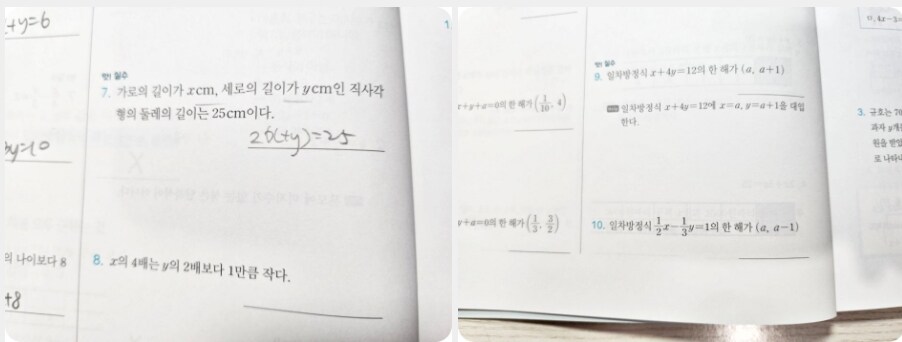 x+y=6
맨날 필수
7. 가로의 길이가 xcm, 세로의 길이가 ycm인 직사각
형의 둘레의 길이는 25cm이다.
2(x+y)=25
y=10
의 나이보다 8
8. x의 4배는 y의 2배보다 1만큼 작다.
+8
1.
필수
9. 일차방정식 x+4y=12의 한 해가 (a, a+1)
x+y+a=0의 한 해가 (1/10, 4)
일차방정식 x+4y=12에 x=a, y=a+1을 대입
한다.
y+a=0의 한 해가 (1/3, 3/2)
10. 일차방정식 1/2x-1/3y=1의 한 해가 (a, a-1)
3. 규호는 70
과자 y개를
원을 받았
로 나타내